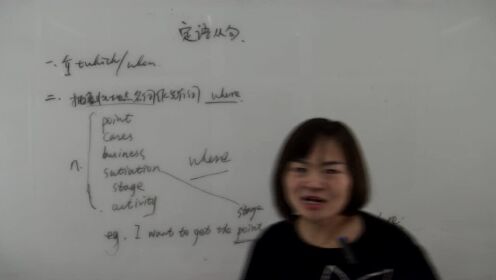 定语从句.
一. 介+which/whom
二. 抽象地点名词作先行词 where
point
cases
business
n. where
situation
stage
activity
stage
eg. I want to get the point